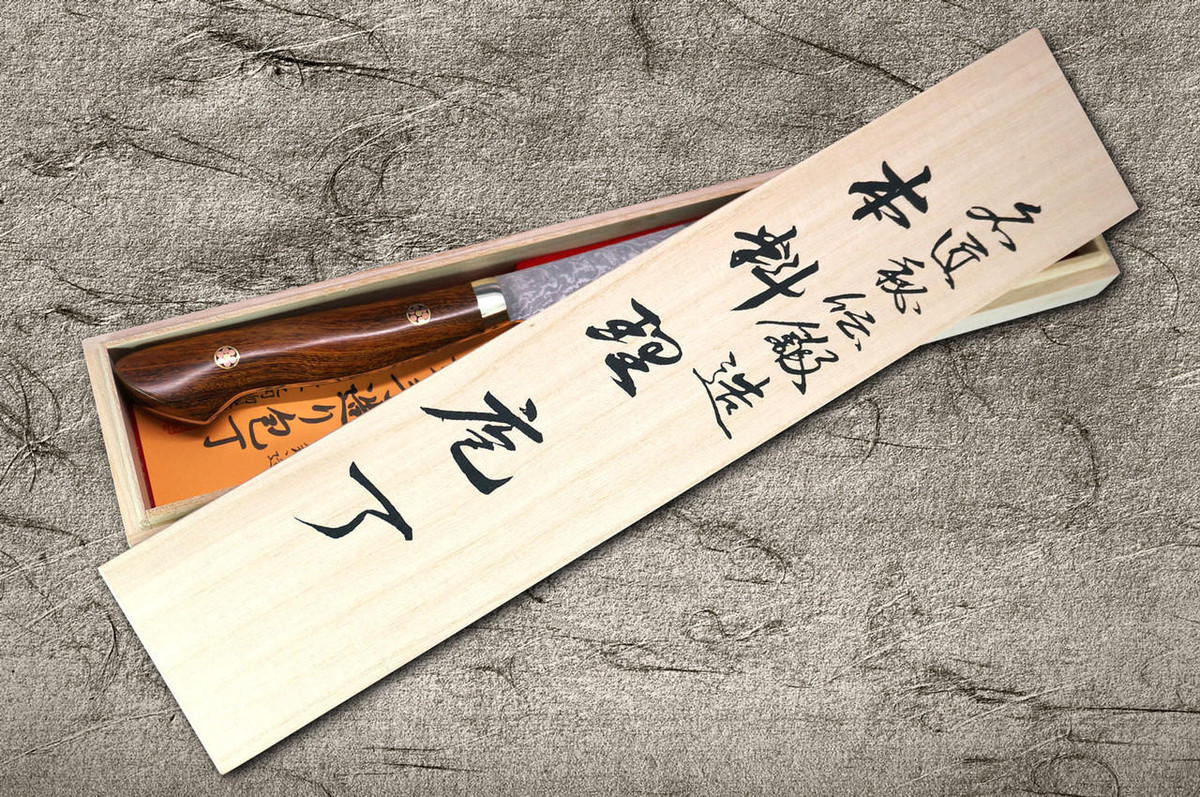 名匠秘伝鍛造
本料理庖丁
り包丁